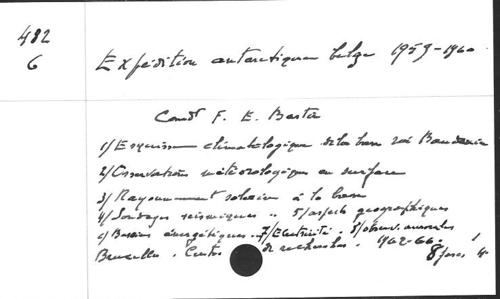 482
6
Expédition antarctique belge 1959-1960
Comdt F. E. Bastin
1/ Esquisse climatologique de la base roi Baudouin
2/ Observations météorologiques en surface
3/ Rayonnement solaire à la base
4/ Sondages séismiques .. 5/ aspects géographiques
6/ Besoins énergétiques .. 7/ Electricité . 8/ observ. aurorales
Bruxelles . Centre de recherches . 1962-66.
8 fasc. 4°